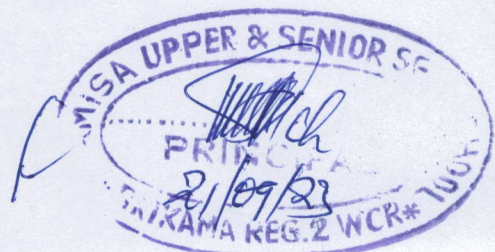 MISA UPPER & SENIOR SE
PRINCIPA
21/09/23
KAMA REG.2 WCR*